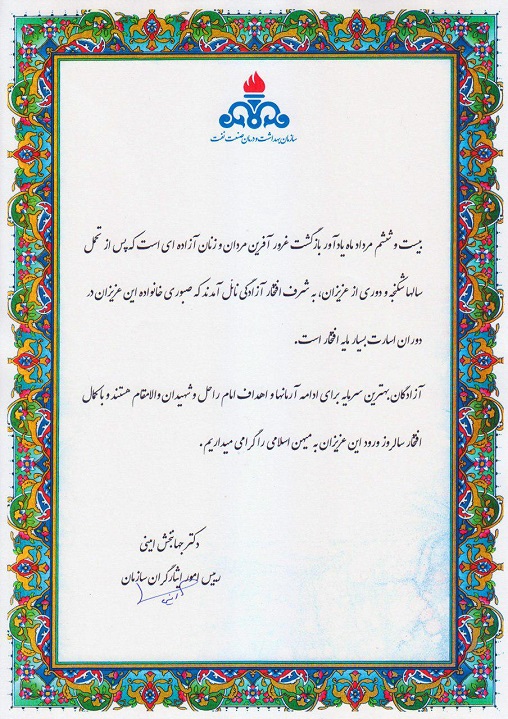 سازمان بهداشت و درمان صنعت نفت
بیست و ششم مرداد ماه یادآور بازگشت غرور آفرین مردان و زنان آزاده ای است که پس از تحمل
سالها شکنجه و دوری از عزیزان، به شرف افتخار آزادگی نائل آمدند که صبوری خانواده این عزیزان در
دوران اسارت بسیار مایه افتخار است.
آزادگان بهترین سرمایه برای ادامه آرمانها و اهداف امام راحل و شهیدان والامقام هستند و با کمال
افتخار سالروز ورود این عزیزان به میهن اسلامی را گرامی میداریم.
دکتر جهانبخش امینی
رییس امور ایثارگران سازمان